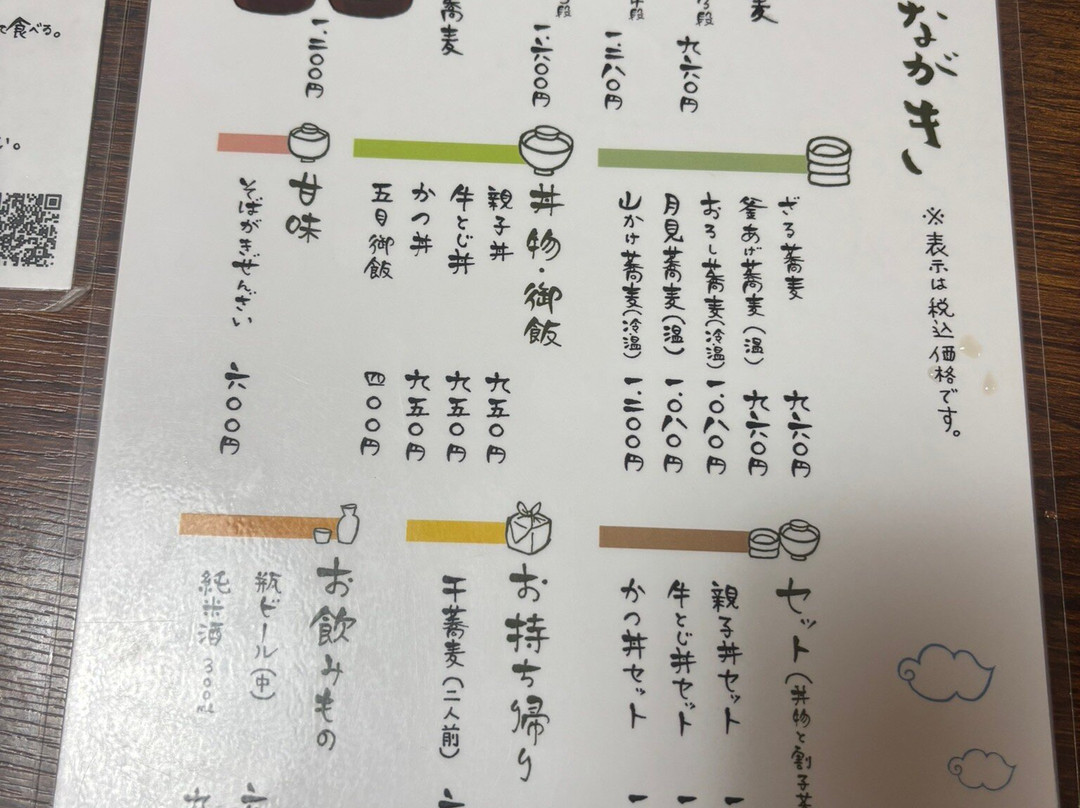 ながき
※表示は税込価格です。
麦
九六〇円
段
一、三八〇円
段
一、六〇〇円
蕎麦
一、二〇〇円
ざる蕎麦 九六〇円
釜あげ蕎麦(温) 九六〇円
おろし蕎麦(冷温) 一、〇八〇円
月見蕎麦(温) 一、〇八〇円
山かけ蕎麦(冷温) 一、二〇〇円
丼物・御飯
親子丼 九五〇円
牛とじ丼 九五〇円
かつ丼 九五〇円
五目御飯 四〇〇円
甘味
そばがきぜんざい 六〇〇円
セット(丼物と割子蕎
親子丼セット 一
牛とじ丼セット 一
かつ丼セット 一
お持ち帰り
干蕎麦(二人前) 六
お飲みもの
瓶ビール(中) 六
純米酒 300mL 九
で食べる。
い。